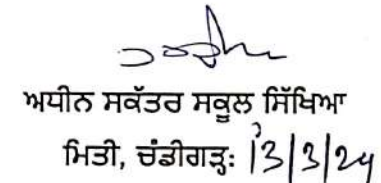 ਅਧੀਨ ਸਕੱਤਰ ਸਕੂਲ ਸਿੱਖਿਆ
ਮਿਤੀ, ਚੰਡੀਗੜ੍ਹ: 13/3/24